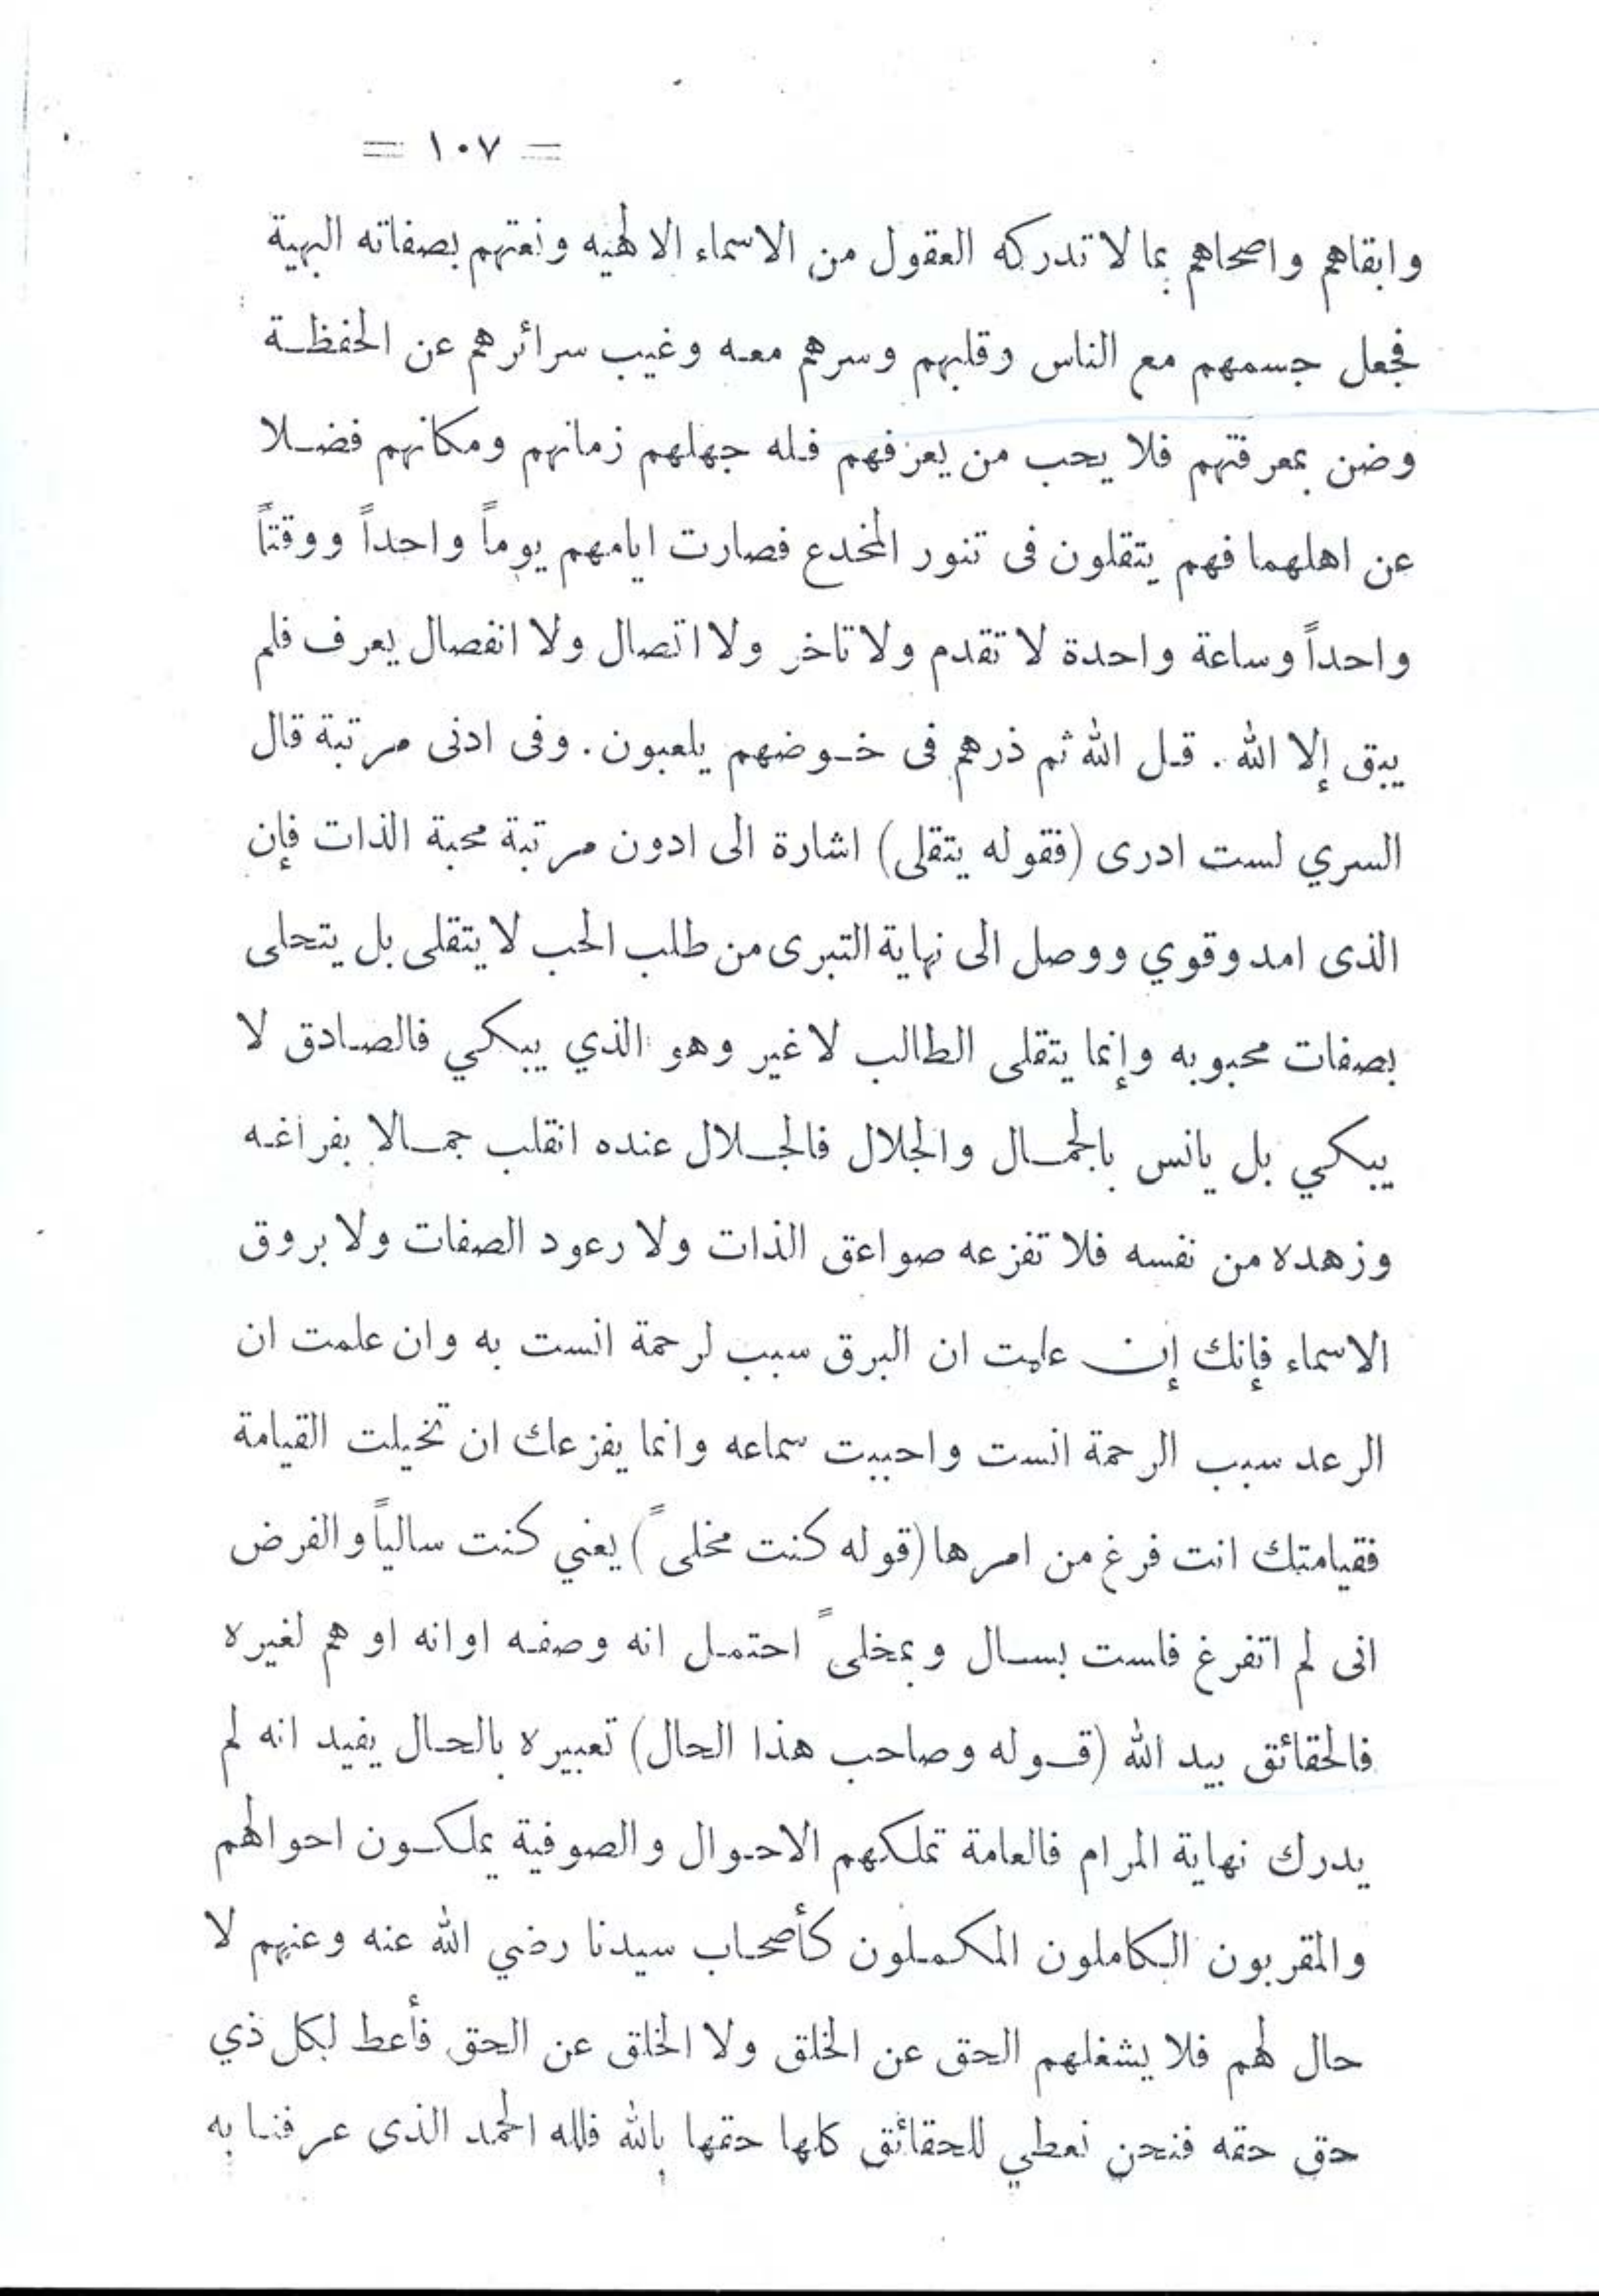 = ١٠٧ =
وابقاهم واصحاهم بما لا تدركه العقول من الاسماء الالهيه ونعتهم بصفاته البهية
فجعل جسمهم مع الناس وقلبهم وسرهم معه وغيب سرائرهم عن الحفظة
وضن بمعرفتهم فلا يحب من يعرفهم فله جهلهم زمانهم ومكانهم فضلا
عن اهلهما فهم يتقلون فى تنور المخدع فصارت ايامهم يوماً واحداً ووقتاً
واحداً وساعة واحدة لا تقدم ولا تاخر ولا اتصال ولا انفصال يعرف فلم
يبق إلا الله . قل الله ثم ذرهم فى خوضهم يلعبون . وفى ادنى مرتبة قال
السري لست ادرى (فقوله يتقلى) اشارة الى ادون مرتبة محبة الذات فإن
الذى امد وقوي ووصل الى نهاية التبرى من طلب الحب لا يتقلى بل يتحلى
بصفات محبوبه وإنما يتقلى الطالب لا غير وهو الذي يبكي فالصادق لا
يبكي بل يانس بالجمال والجلال فالجلال عنده انقلب جمالا بفراغه
وزهده من نفسه فلا تفزعه صواعق الذات ولا رعود الصفات ولا بروق
الاسماء فإنك إن علمت ان البرق سبب لرحمة انست به وان علمت ان
الرعد سبب الرحمة انست واحببت سماعه وانما يفزعك ان تخيلت القيامة
فقيامتك انت فرغ من امرها (قوله كنت مخلىً) يعني كنت سالياً والفرض
انى لم اتفرغ فلست بسال وبمخلىً احتمل انه وصفه اوانه او هم لغيره
فالحقائق بيد الله (قوله وصاحب هذا الحال) تعبيره بالحال يفيد انه لم
يدرك نهاية المرام فالعامة تملكهم الاحوال والصوفية يملكون احوالهم
والمقربون الكاملون المكملون كأصحاب سيدنا رضي الله عنه وعنهم لا
حال لهم فلا يشغلهم الحق عن الخلق ولا الخلق عن الحق فأعط لكل ذي
حق حقه فنحن نعطي للحقائق كلها حقها بالله فلله الحمد الذى عرفنا به